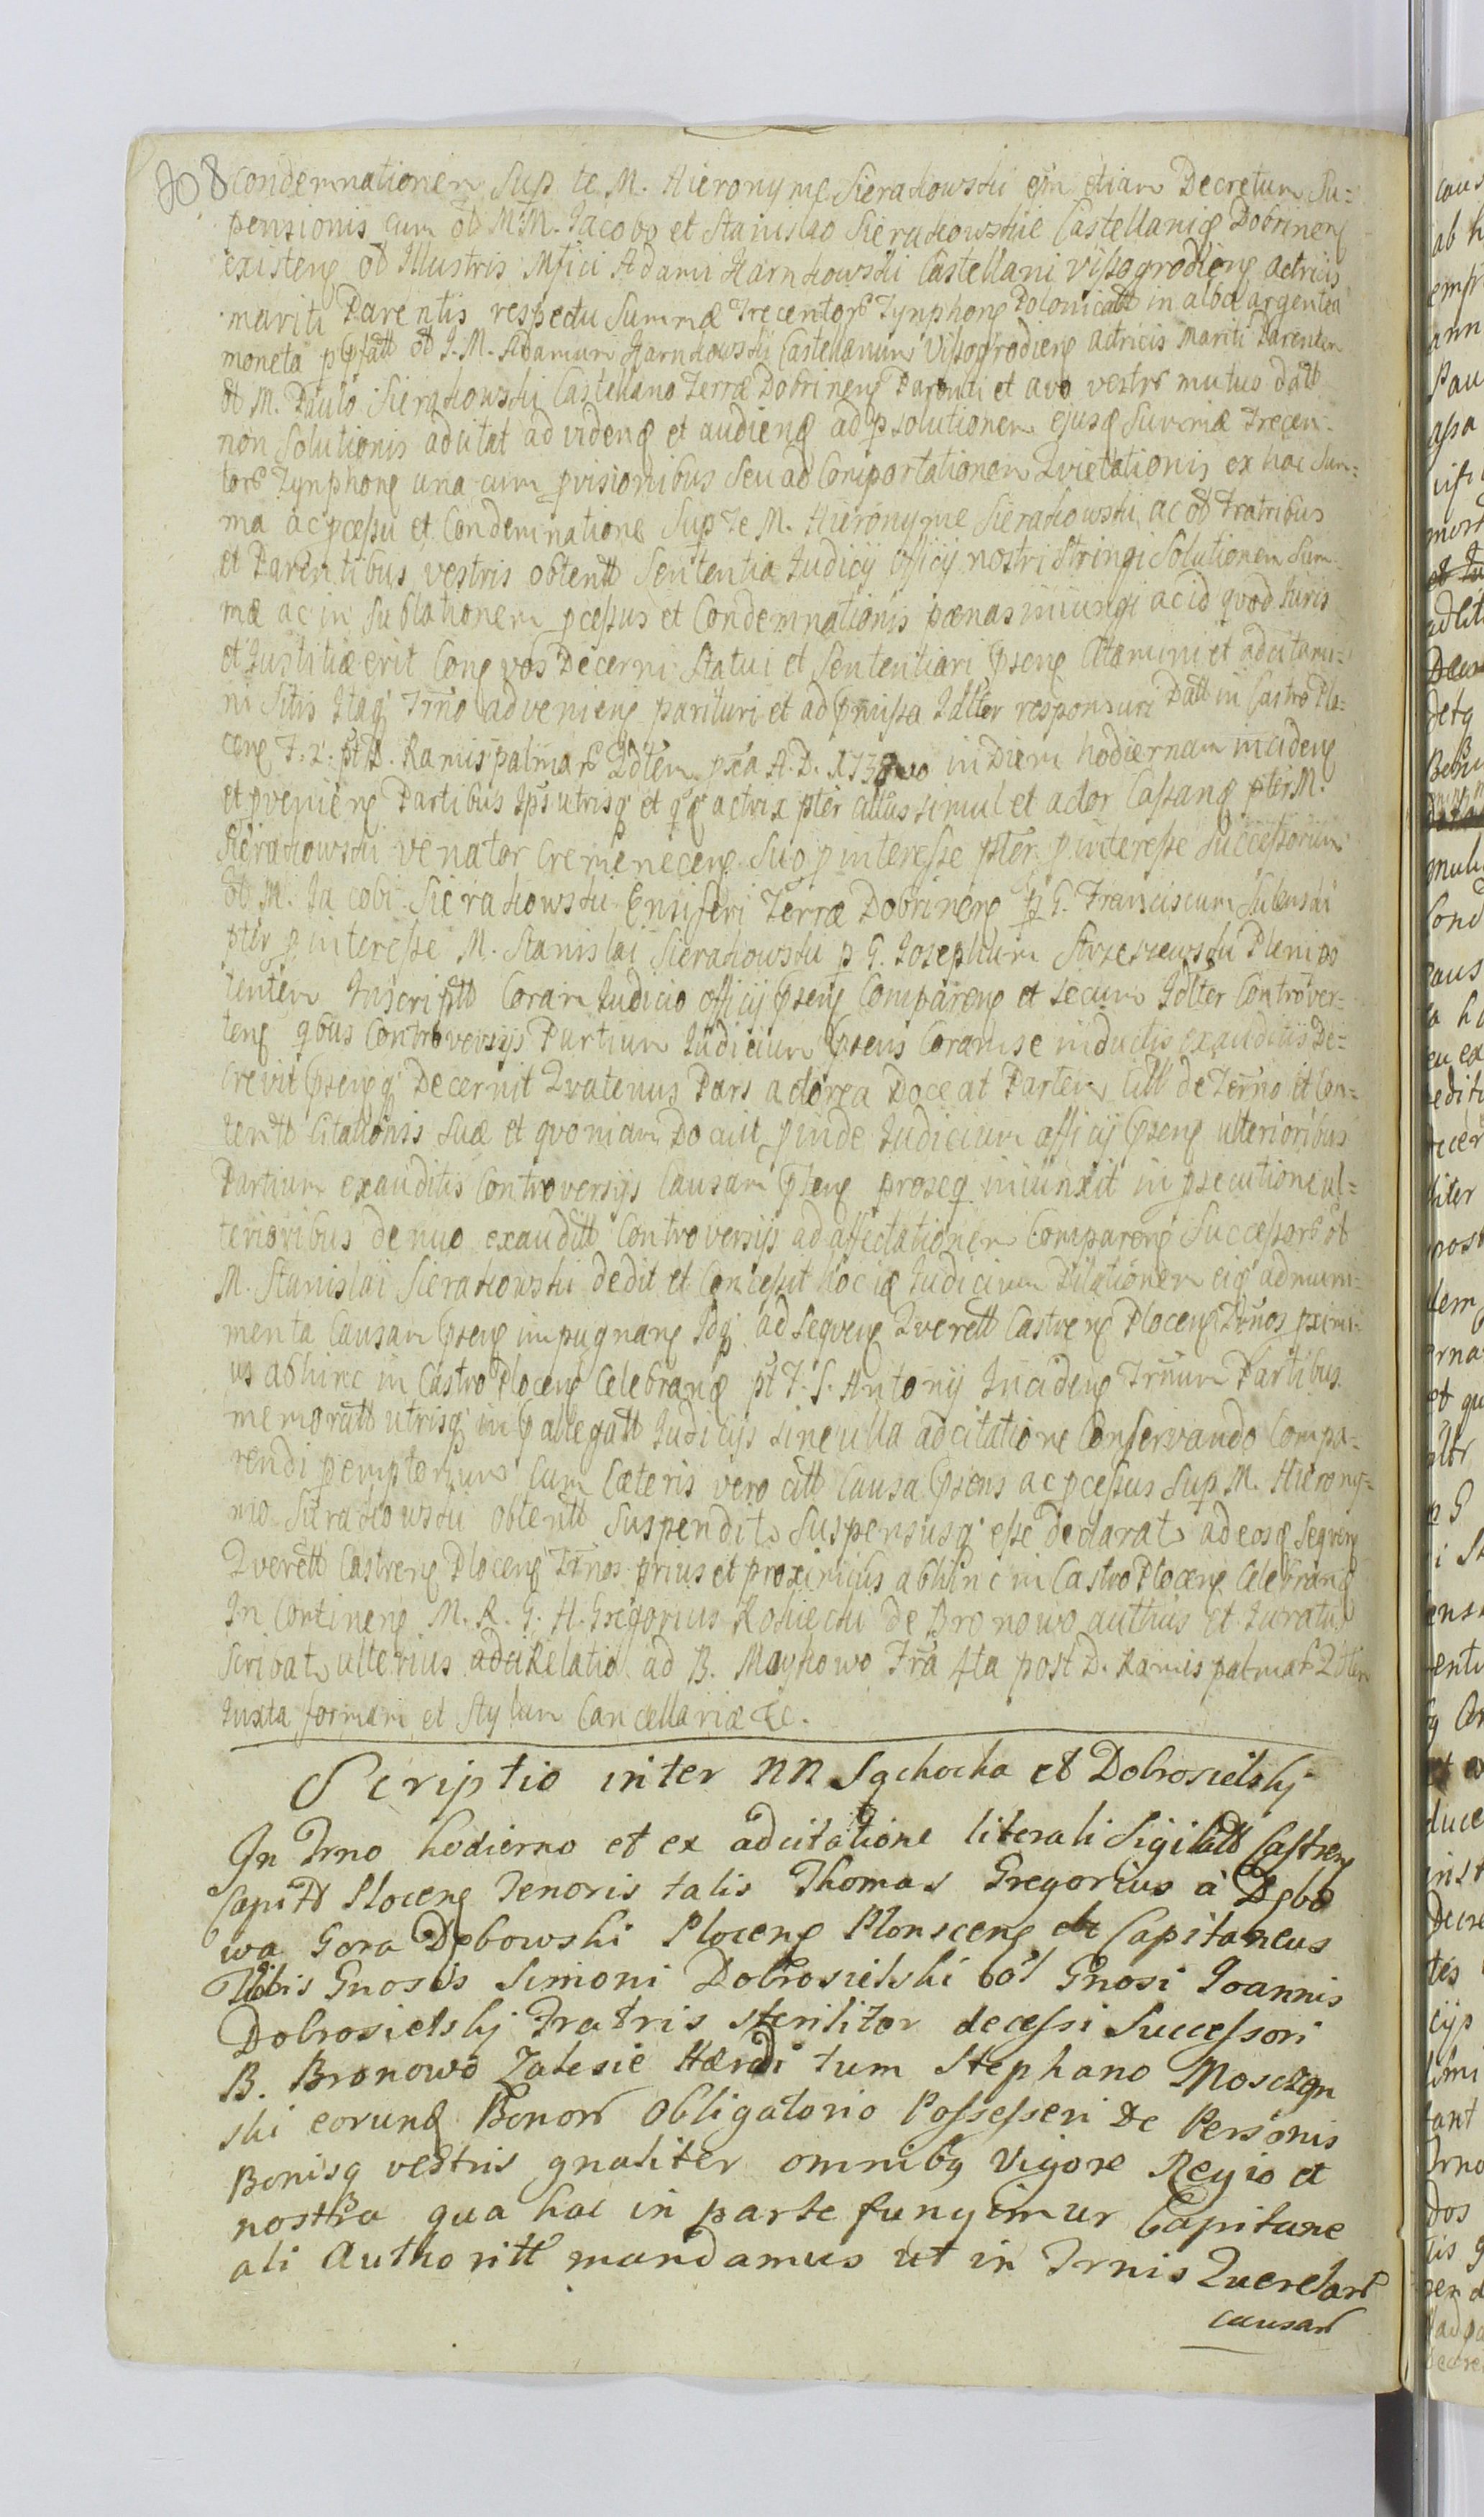 208
Condemnationem Sup te M. Hieronyme Sierakowski ejm etiam Decretum Su=
pensionis cum ol MM. Jacobo et Stanislao Sierakowskie Castellaniq Dobrineng
existeng ol Illustris Mfici Adami Karnkowski Castellani Vissogrodieng actricis
mariti Parentis respectu Summæ Trecentor Tynphong Polonicatt in alba argentea
moneta p pfatt ol J. M. Adamum Karnkowski Castellanum Vissogrodieng actricis Mariti Parentem
ol M. Paulo Sierakowski Castellano Terræ Dobrineng Parenti et avo vestre mutuo datt
non Solutionis adcitat ad videnq et audienq ad psolutionem ejusq Summæ Trecen-
tor Tynphong una cum pvisionibus Seu ad Comportationem Qvietationis ex hac Sum=
ma ac pcessu et Condemnatione Sup Te M. Hieronyme Sierakowski ac ol Fratribus
et Parentibus vestris obtentt Sententia Judicij officij nostri Stringi Solutionem Sum-
mæ ac in Sublationem pcessus et Condemnationis pœnas iniungi ac id qvod Juris
et Justitiæ erit Cong vos Decerni Statui et Sententiari Pseng Citamini et adcitami=
ni Sitis Itaq Trno advenieng parituri et ad Pmissa Jdlter responsuri Datt in Castro Plo=
ceng F. 2. pt D. Ramispalmar Qdtem pxa A. D. 1738vo in Diem hodiernam incideng
et pvenieng Partibus Ips utrisq et qq actrix pter citus simul et actor Cassanq pter M.
Sierakowski venator Cremeneceng Suo p interesse pter p interesse Successorum
ol M. Jacobi Sierakowski Ensiferi Terræ Dobrineng p G. Franciscum Sulenski
pter p interesse M. Stanislai Sierakowski p G. Josephum Strzeszewski Plenipo
tentem Inscriptt Coram Judicio officij Pseng Compareng et Secum Jdlter Controver=
teng qbus Controversijs Partium Judicium Psens Coram se inductis exauditis De=
crevit Psengq Decernit Qvatenus Pars actorea Doceat Partem Citt de Termo et Con=
tentt Citationis Suæ et qvoniam Docuit pinde Judicium officij Pseng ulterioribus
Partium exauditis Controversijs Causam Pseng proseq iniunxit in psecutione ul=
terioribus denuo exauditt Controversijs ad affectationem Compareng Successor ol
M. Stanislai Sierakowski dedit et Concessit hocce Judicium Dilationem eiq ad muni=
menta Causam Pseng impugnang Idq ad Seqveng Qverett Castreng Ploceng Trnos proximi=
us abhinc in Castro Ploceng Celebranq pt F. S. Antonij Incideng Trnum Partibus
memoratt utrisq in Pallegatt Judicijs Sine ulla adcitatione Conservando Compa=
rendi pemptorium Cum Cæteris vero citt Causa Psens ac pcessus Sup M. Hierony=
mo Sierakowski obtentt Suspendit Suspensusq esse declarat ad eosq Seqveng
Qverett Castreng Ploceng Trnos prius et proximius abhinc in Castro Ploceng Celebranq
In Contineng M. R. G. H. Gregorius Rokicki de Bronowo authus et Juratus
Scribat ulterius adci Relatio ad B. Maykowo Fra 4ta post D. Ramis palmar Qdtem
Juxta formam et Stylum Cancellariæ &c.
Scriptio inter NN Sąchocka et Dobrosielskj
In Trno hodierno et ex adcitatione literali Sigilatt Castreng
Capitt Ploceng Tenoris talis Thomas Gregorius à Dębo
wa Gora Dębowski Ploceng Plonsceng etc Capitaneus
Vobis Gnosis Simoni Dobrosielski ol Gnosi Joannis
Dobrosielskj Fratris sterilitor decessi Successori
B. Bronowo Zalesie Hærdi tum Stephano Mosczyn
ski eorunq Bonor obligatorio Possessori De Personis
Bonisq vestris gnaliter omnibq Vigore Regio et
nostra qua hac in parte fungimur Capitane
ali Authoritt mandamus ut in Trnis Querelar
causar